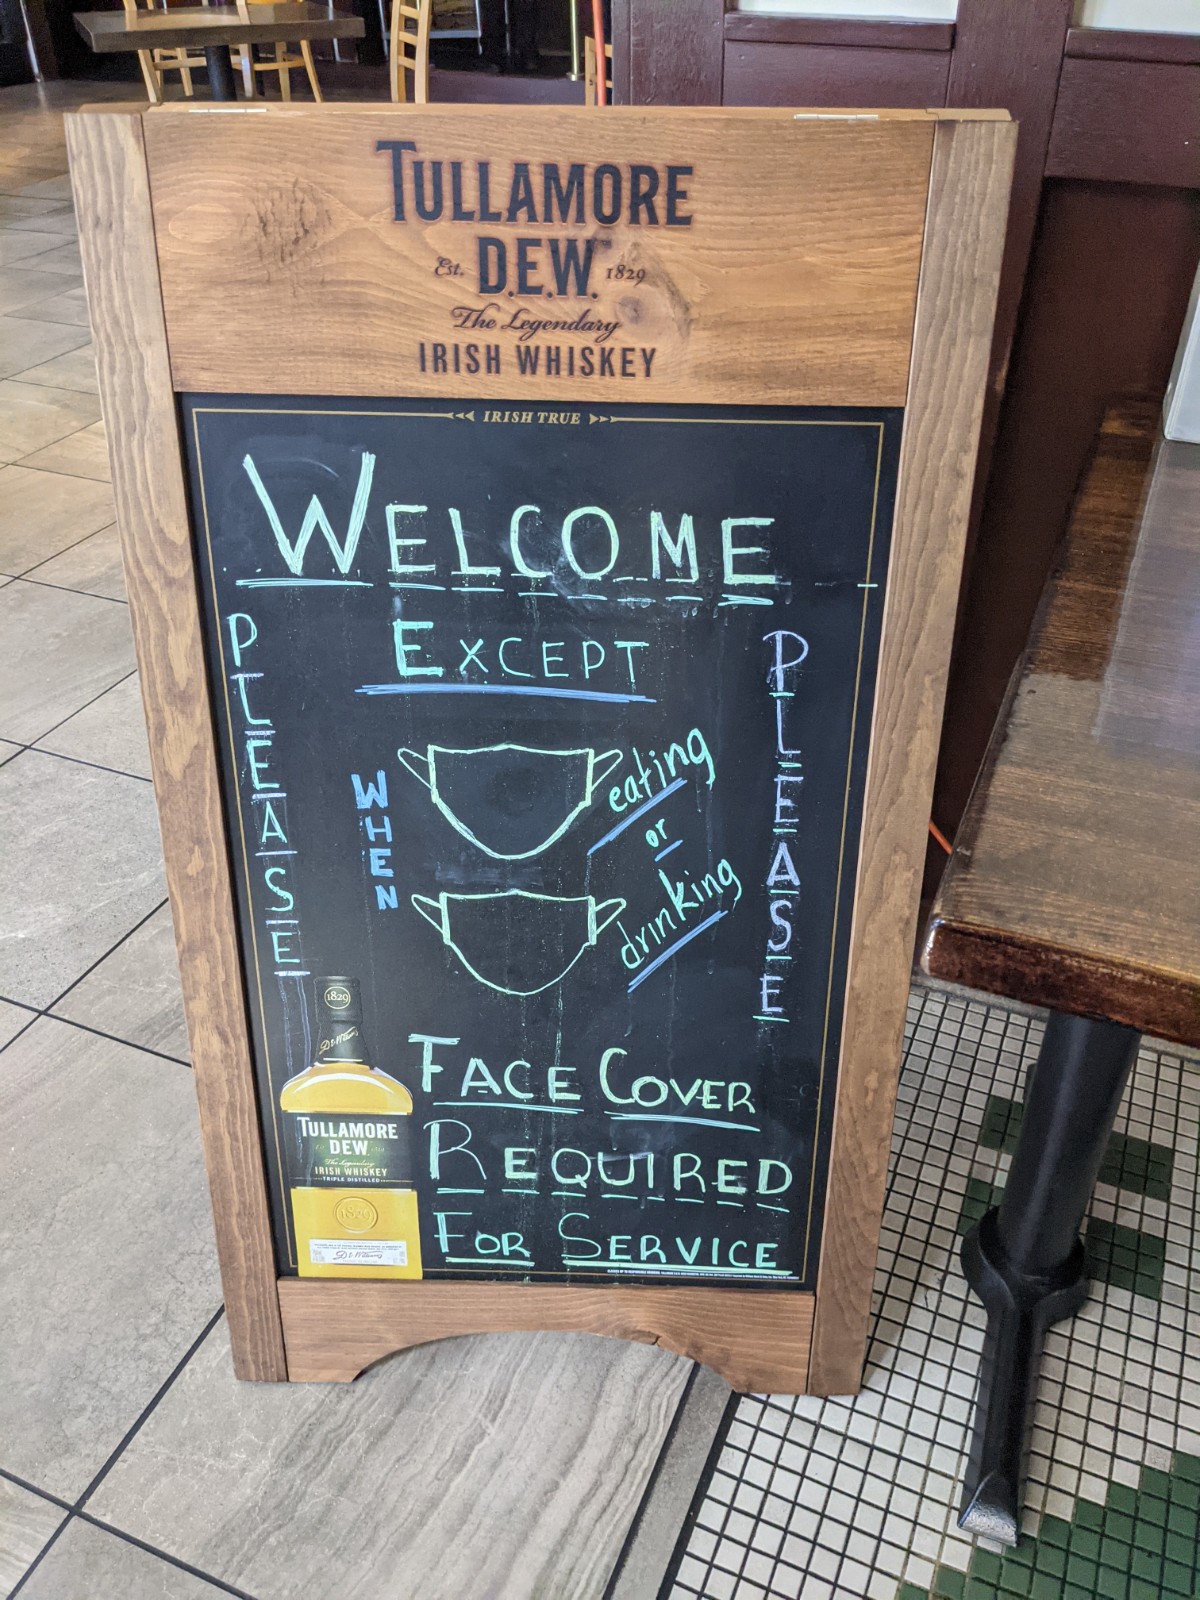 TULLAMORE
D.E.W.
Est. 1829
The Legendary
IRISH WHISKEY
IRISH TRUE
WELCOME
EXCEPT
PLEASE
WHEN
eating
or
drinking
PLEASE
FACE COVER
REQUIRED
FOR SERVICE
1829
TULLAMORE
DEW
The Legendary
IRISH WHISKEY
TRIPLE DISTILLED
1829